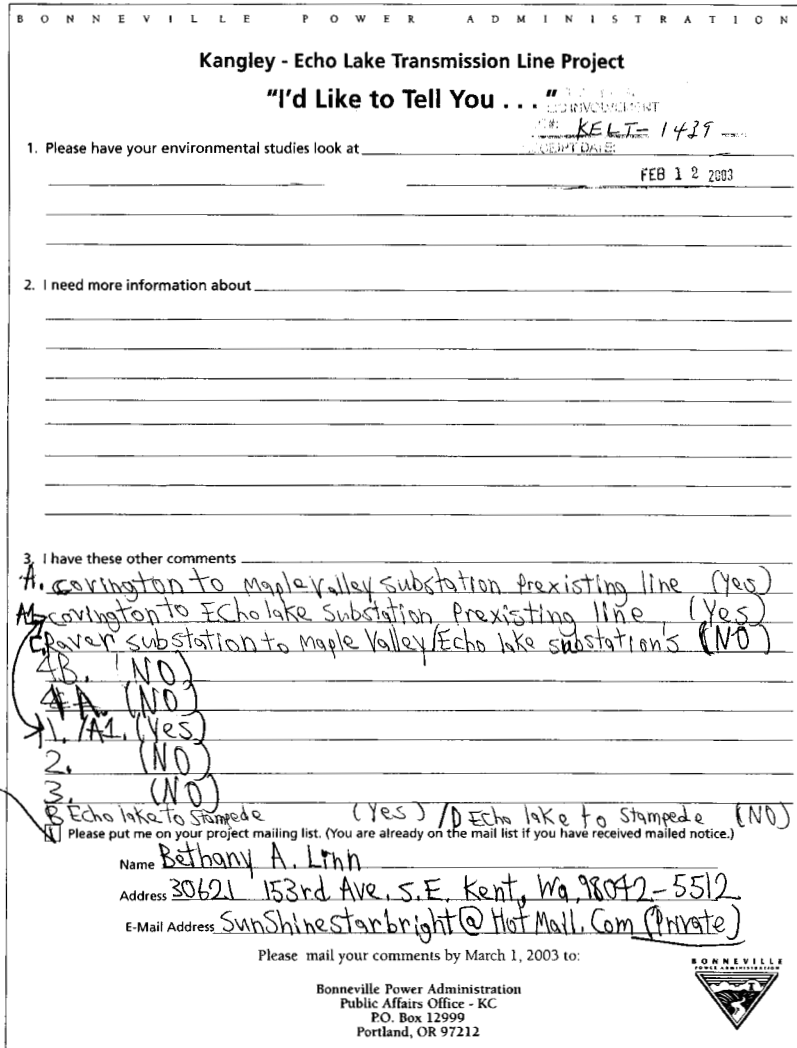 BONNEVILLE POWER ADMINISTRATION
Kangley - Echo Lake Transmission Line Project
"I'd Like to Tell You . . . "
KELT- 1439
1. Please have your environmental studies look at
FEB 12 2003
2. I need more information about
3. I have these other comments
A. covington to Maple Valley Substation Prexisting line (Yes)
A1. covington to Echo lake Substation Prexisting line, (Yes)
C. Raver substation to Maple Valley/Echo lake substation's (NO)
4B. (NO)
4A. (NO)
1. /A1. (Yes)
2. (NO)
3. (NO)
B Echo lake to Stampede (Yes) / D Echo lake to Stampede (NO)
Please put me on your project mailing list. (You are already on the mail list if you have received mailed notice.)
Name Bethany A. Linn
Address 30621 153rd Ave. S.E. Kent, Wa, 98042-5512
E-Mail Address SunShinestarbright@HotMail.Com (Private)
Please mail your comments by March 1, 2003 to:
Bonneville Power Administration
Public Affairs Office - KC
P.O. Box 12999
Portland, OR 97212
BONNEVILLE
POWER ADMINISTRATION